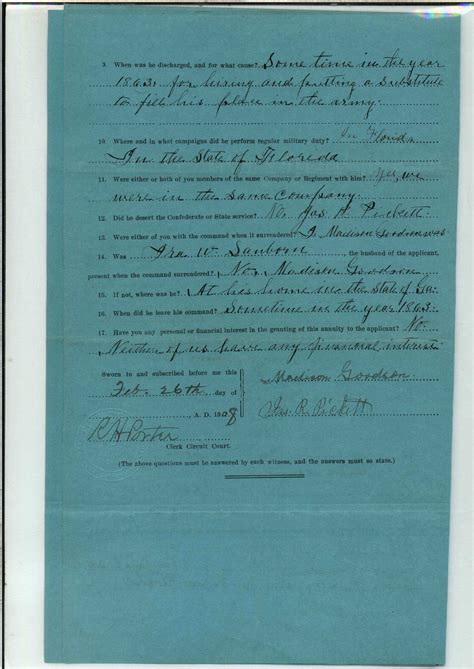 9. When was he discharged, and for what cause? Some time in the year
1863. for hiring and putting a Substitute
to fill his place in the army.
10. Where and in what campaigns did he perform regular military duty? In Florida
In the State of Floreda
11. Were either or both of you members of the same Company or Regiment with him? Yes, we
were in the same company.
12. Did he desert the Confederate or State service? No. Jas R Pickett
13. Were either of you with the command when it surrendered? I Madison Goodson was
14. Was Ira W Sanborn, the husband of the applicant,
present when the command surrendered? No. Madison Goodson
15. If not, where was he? At his home in the State of Ga.
16. When did he leave his command? Sometime in the year 1863.
17. Have you any personal or financial interest in the granting of this annuity to the applicant? No.
Neither of us have any financial interest
Sworn to and subscribed before me this
Feb. 26th day of
A. D. 1908
Madison Goodson
Jas. R. Pickett
R H Porter
Clerk Circuit Court.
(The above questions must be answered by each witness, and the answers must so state.)